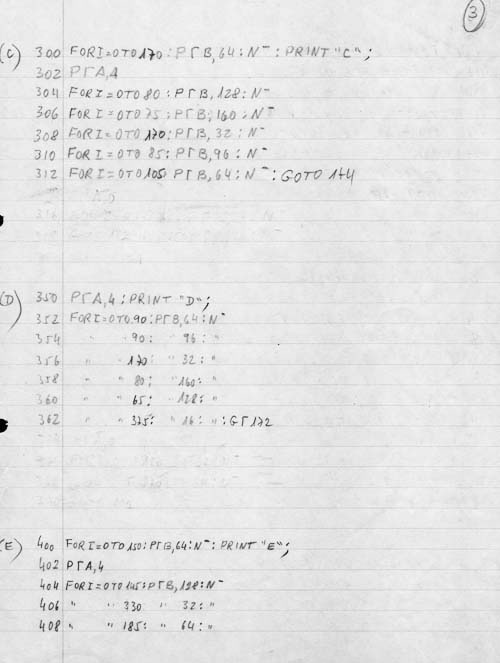 3
(C) 300 FOR I=0TO170:PΓB,64:N⁻:PRINT "C";
302 PΓA,4
304 FOR I=0TO80:PΓB,128:N⁻
306 FOR I=0TO75:PΓB,160:N⁻
308 FOR I=0TO170:PΓB,32:N⁻
310 FOR I=0TO85:PΓB,96:N⁻
312 FOR I=0TO105:PΓB,64:N⁻:GOTO 174
(D) 350 PΓA,4:PRINT "D";
352 FOR I=0TO90:PΓB,64:N⁻
354 " " 90: " 96: "
356 " " 170: " 32: "
358 " " 80: "160: "
360 " " 65: "128: "
362 " " 375: "16: ":GΓ172
(E) 400 FOR I=0TO150:PΓB,64:N⁻:PRINT "E";
402 PΓA,4
404 FOR I=0TO145:PΓB,128:N⁻
406 " " 330 " 32: "
408 " " 185: " 64: "